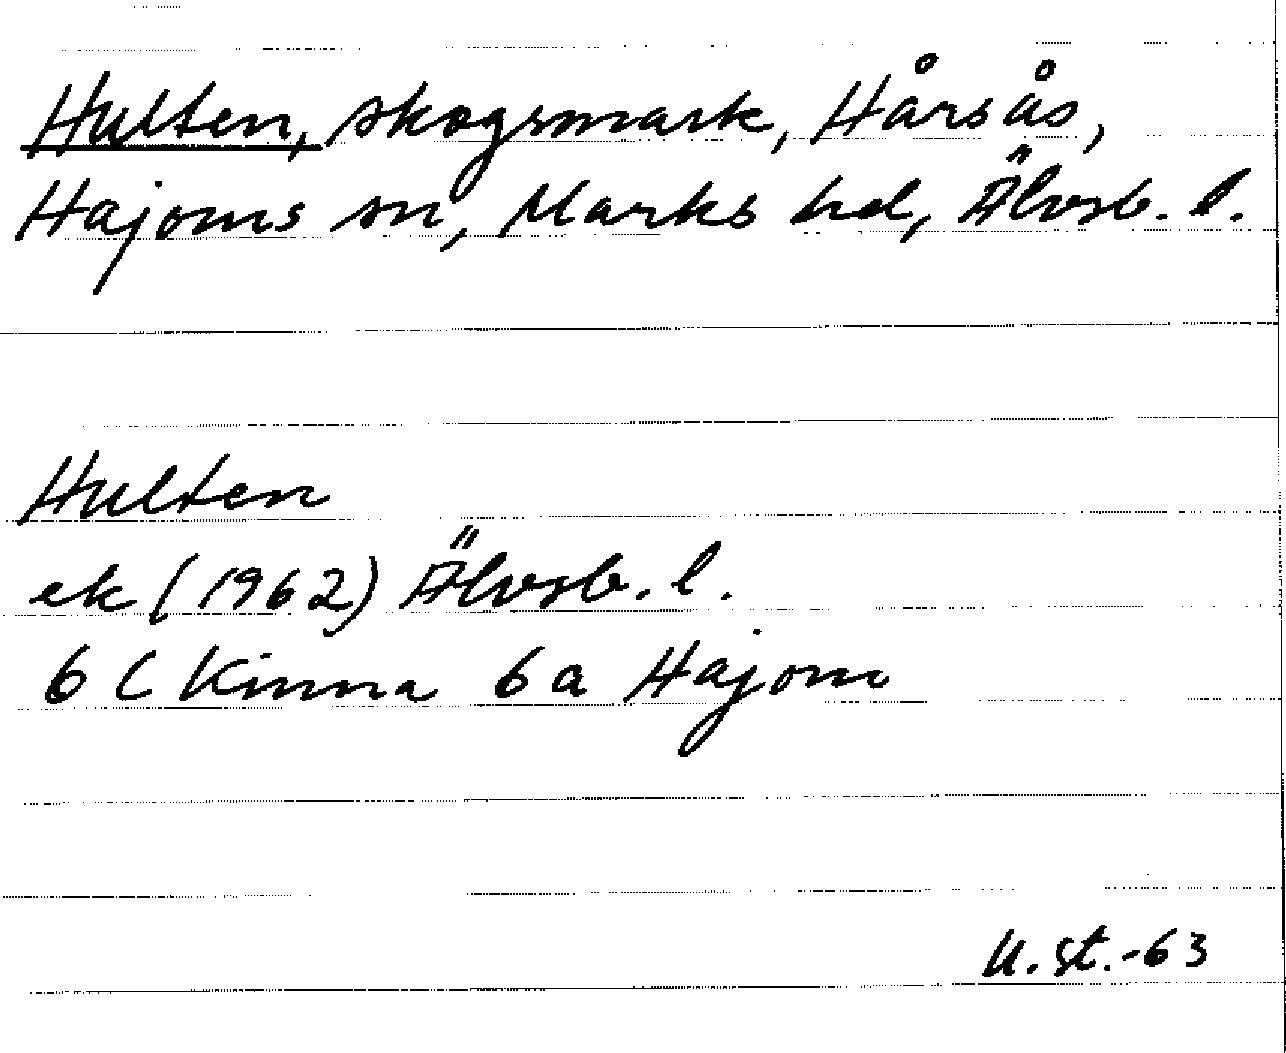 Hulten, skogsmark, Hårsås,
Hajoms sn, Marks hd, Älvsb. l.
Hulten
ek (1962) Älvsb. l.
6 C Kinna 6a Hajom
U. St. -63